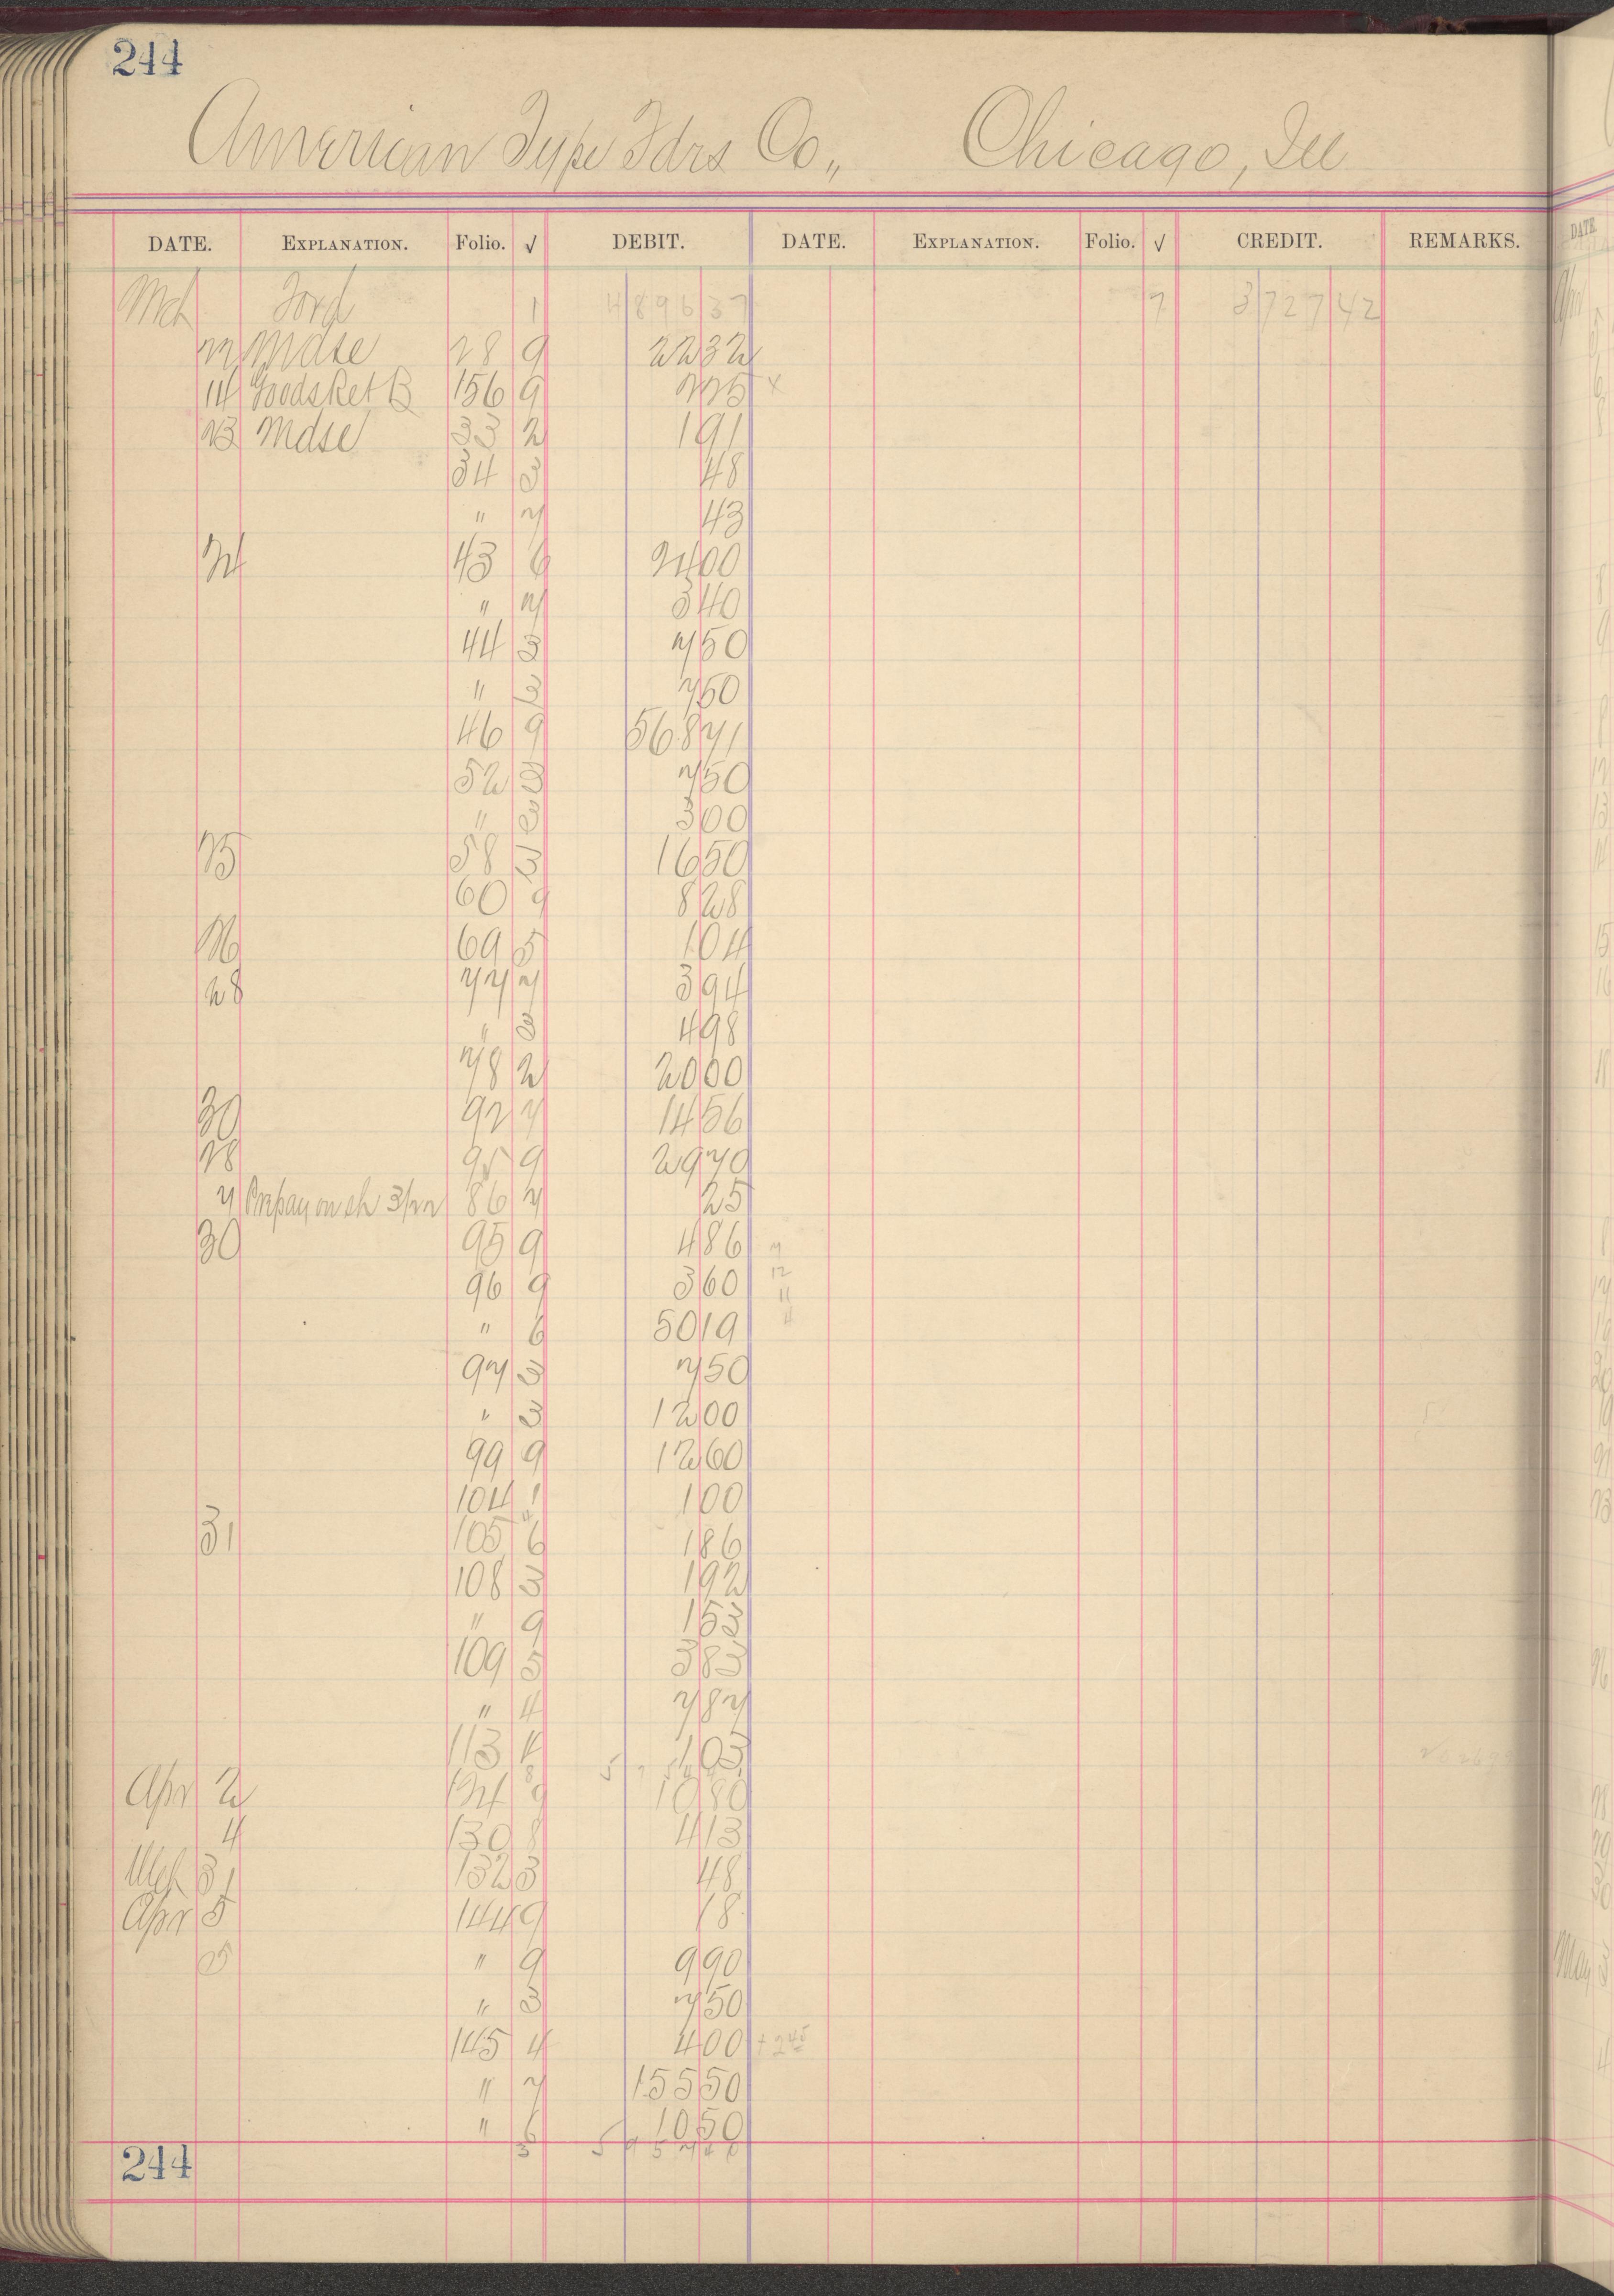 244
American Type Fdrs Co., Chicago, Ill
DATE. EXPLANATION. Folio. √ DEBIT. DATE. EXPLANATION. Folio. √ CREDIT. REMARKS.
Mch Ford 1 4896 37 7 3727 42
22 Mdse 28 9 22 32
14 Goods Ret B 156 9 2 25 x
23 Mdse 33 2 1 91
34 3 48
" 7 43
24 43 6 24 00
" 7 3 40
44 3 7 50
" 3 7 50
46 9 568 71
52 3 7 50
" 3 3 00
25 58 3 16 50
60 9 8 28
26 69 5 1 04
28 77 7 3 94
" 3 4 98
78 2 20 00
30 92 7 14 56
28 95 9 29 70
7 Prepay on sh 3/22 86 7 25
30 95 9 4 86
96 9 3 60 12
" 6 50 19 11
97 3 7 50
" 3 12 00
99 9 12 60
104 1 1 00
31 105 6 1 86
108 3 1 92
" 9 1 53
109 5 3 83
" 4 7 87
113 1 03
Apr 2 124 9 10 80
4 130 8 4 13
Mch 31 132 3 48
Apr 5 144 9 18
5 " 9 9 90
" 3 7 50
145 4 4 00 + 245
" 7 155 50
" 6 10 50
3
244